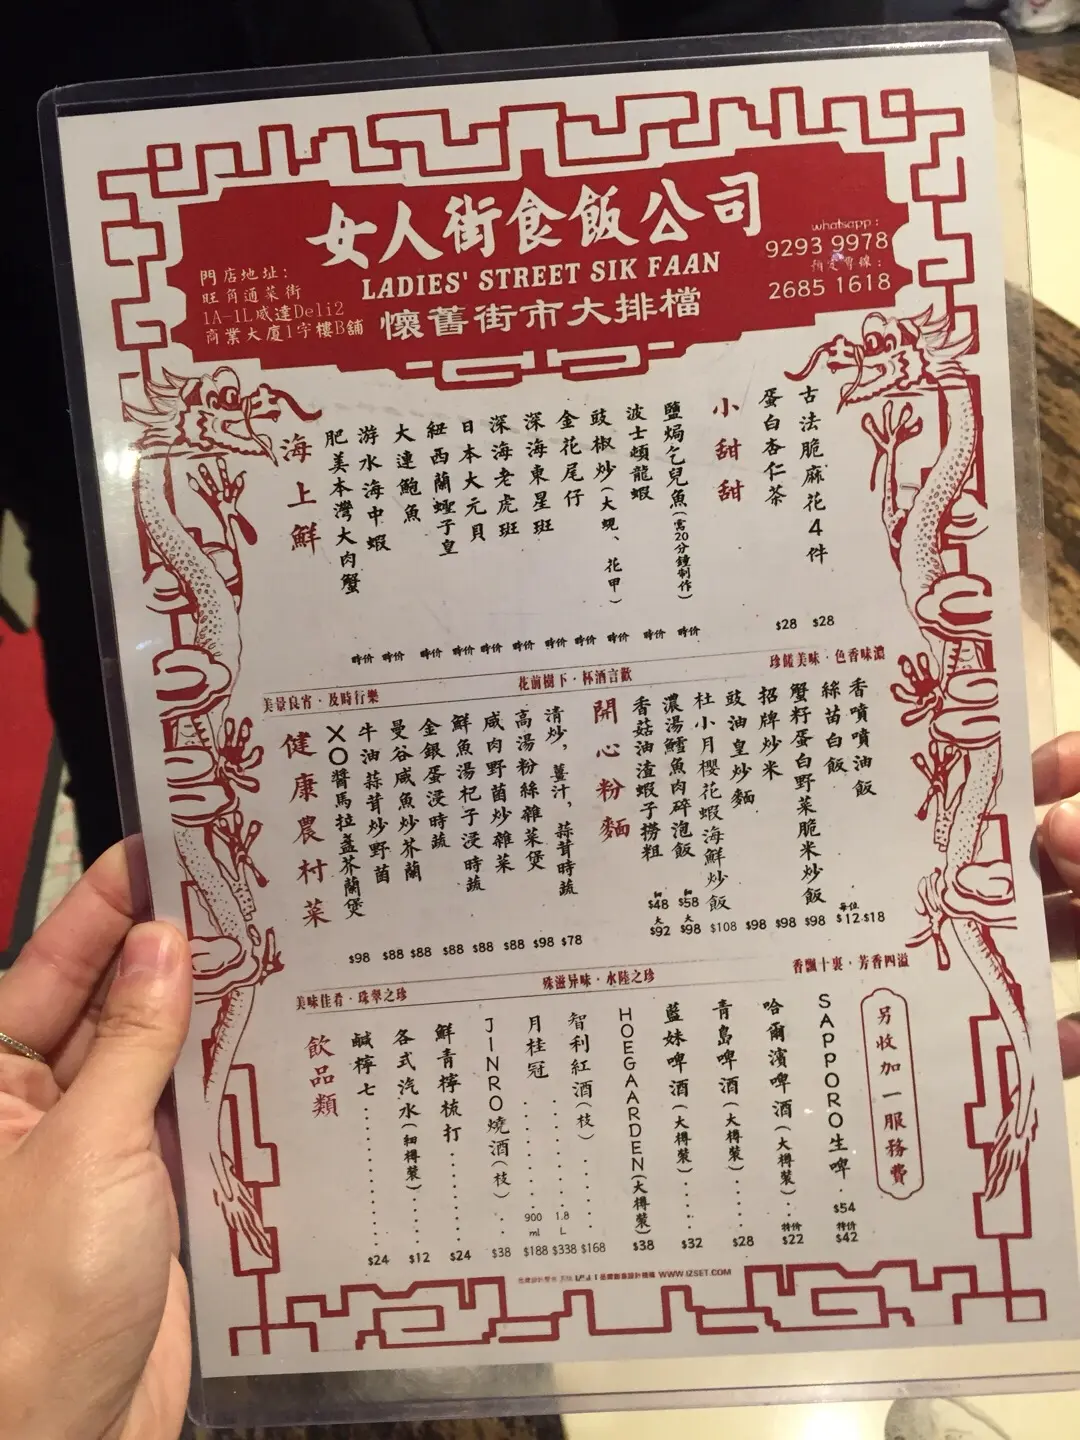 女人街食飯公司
LADIES' STREET SIK FAAN
懷舊街市大排檔
門店地址:
旺角通菜街
1A-1L威達Deli2
商業大廈1字樓B舖
whatsapp:
9293 9978
預定專線:
2685 1618
海上鮮
肥美本灣大肉蟹 時价
游水海中蝦 時价
大連鮑魚 時价
紐西蘭蟶子皇 時价
日本大元貝 時价
深海老虎班 時价
深海東星班 時价
金花尾仔 時价
豉椒炒(大蜆、花甲) 時价
波士頓龍蝦 時价
鹽焗乞兒魚(需20分鐘制作) 時价
小甜甜
蛋白杏仁茶 $28
古法脆麻花4件 $28
美景良宵·及時行樂
花前樹下·杯酒言歡
珍饈美味·色香味濃
健康農村菜
XO醬馬拉盞芥蘭煲 $98
牛油蒜茸炒野菌 $88
曼谷咸魚炒芥蘭 $88
金銀蛋浸時蔬 $88
鮮魚湯杞子浸時蔬 $88
咸肉野菌炒雜菜 $88
高湯粉絲雜菜煲 $98
清炒,薑汁,蒜茸時蔬 $78
開心粉麵
香菇油渣蝦子撈粗 細 $48 大 $92
濃湯鱈魚肉碎泡飯 細 $58 大 $98
杜小月櫻花蝦海鮮炒飯 $108
豉油皇炒麵 $98
招牌炒米 $98
蟹籽蛋白野菜脆米炒飯 $98
絲苗白飯 每位 $12
香噴噴油飯 $18
美味佳肴·珠翠之珍
殊滋异味·水陸之珍
香飄十裏·芳香四溢
飲品類
鹹檸七 $24
各式汽水(細樽裝) $12
鮮青檸梳打 $24
JINRO燒酒(枝) $38
月桂冠 900 ml $188 1.8 L $338
智利紅酒(枝) $168
HOEGAARDEN(大樽裝) $38
藍妹啤酒(大樽裝) $32
青島啤酒(大樽裝) $28
哈爾濱啤酒(大樽裝) 特价 $22
SAPPORO生啤 $54 特价 $42
另收加一服務費
WWW.IZSET.COM